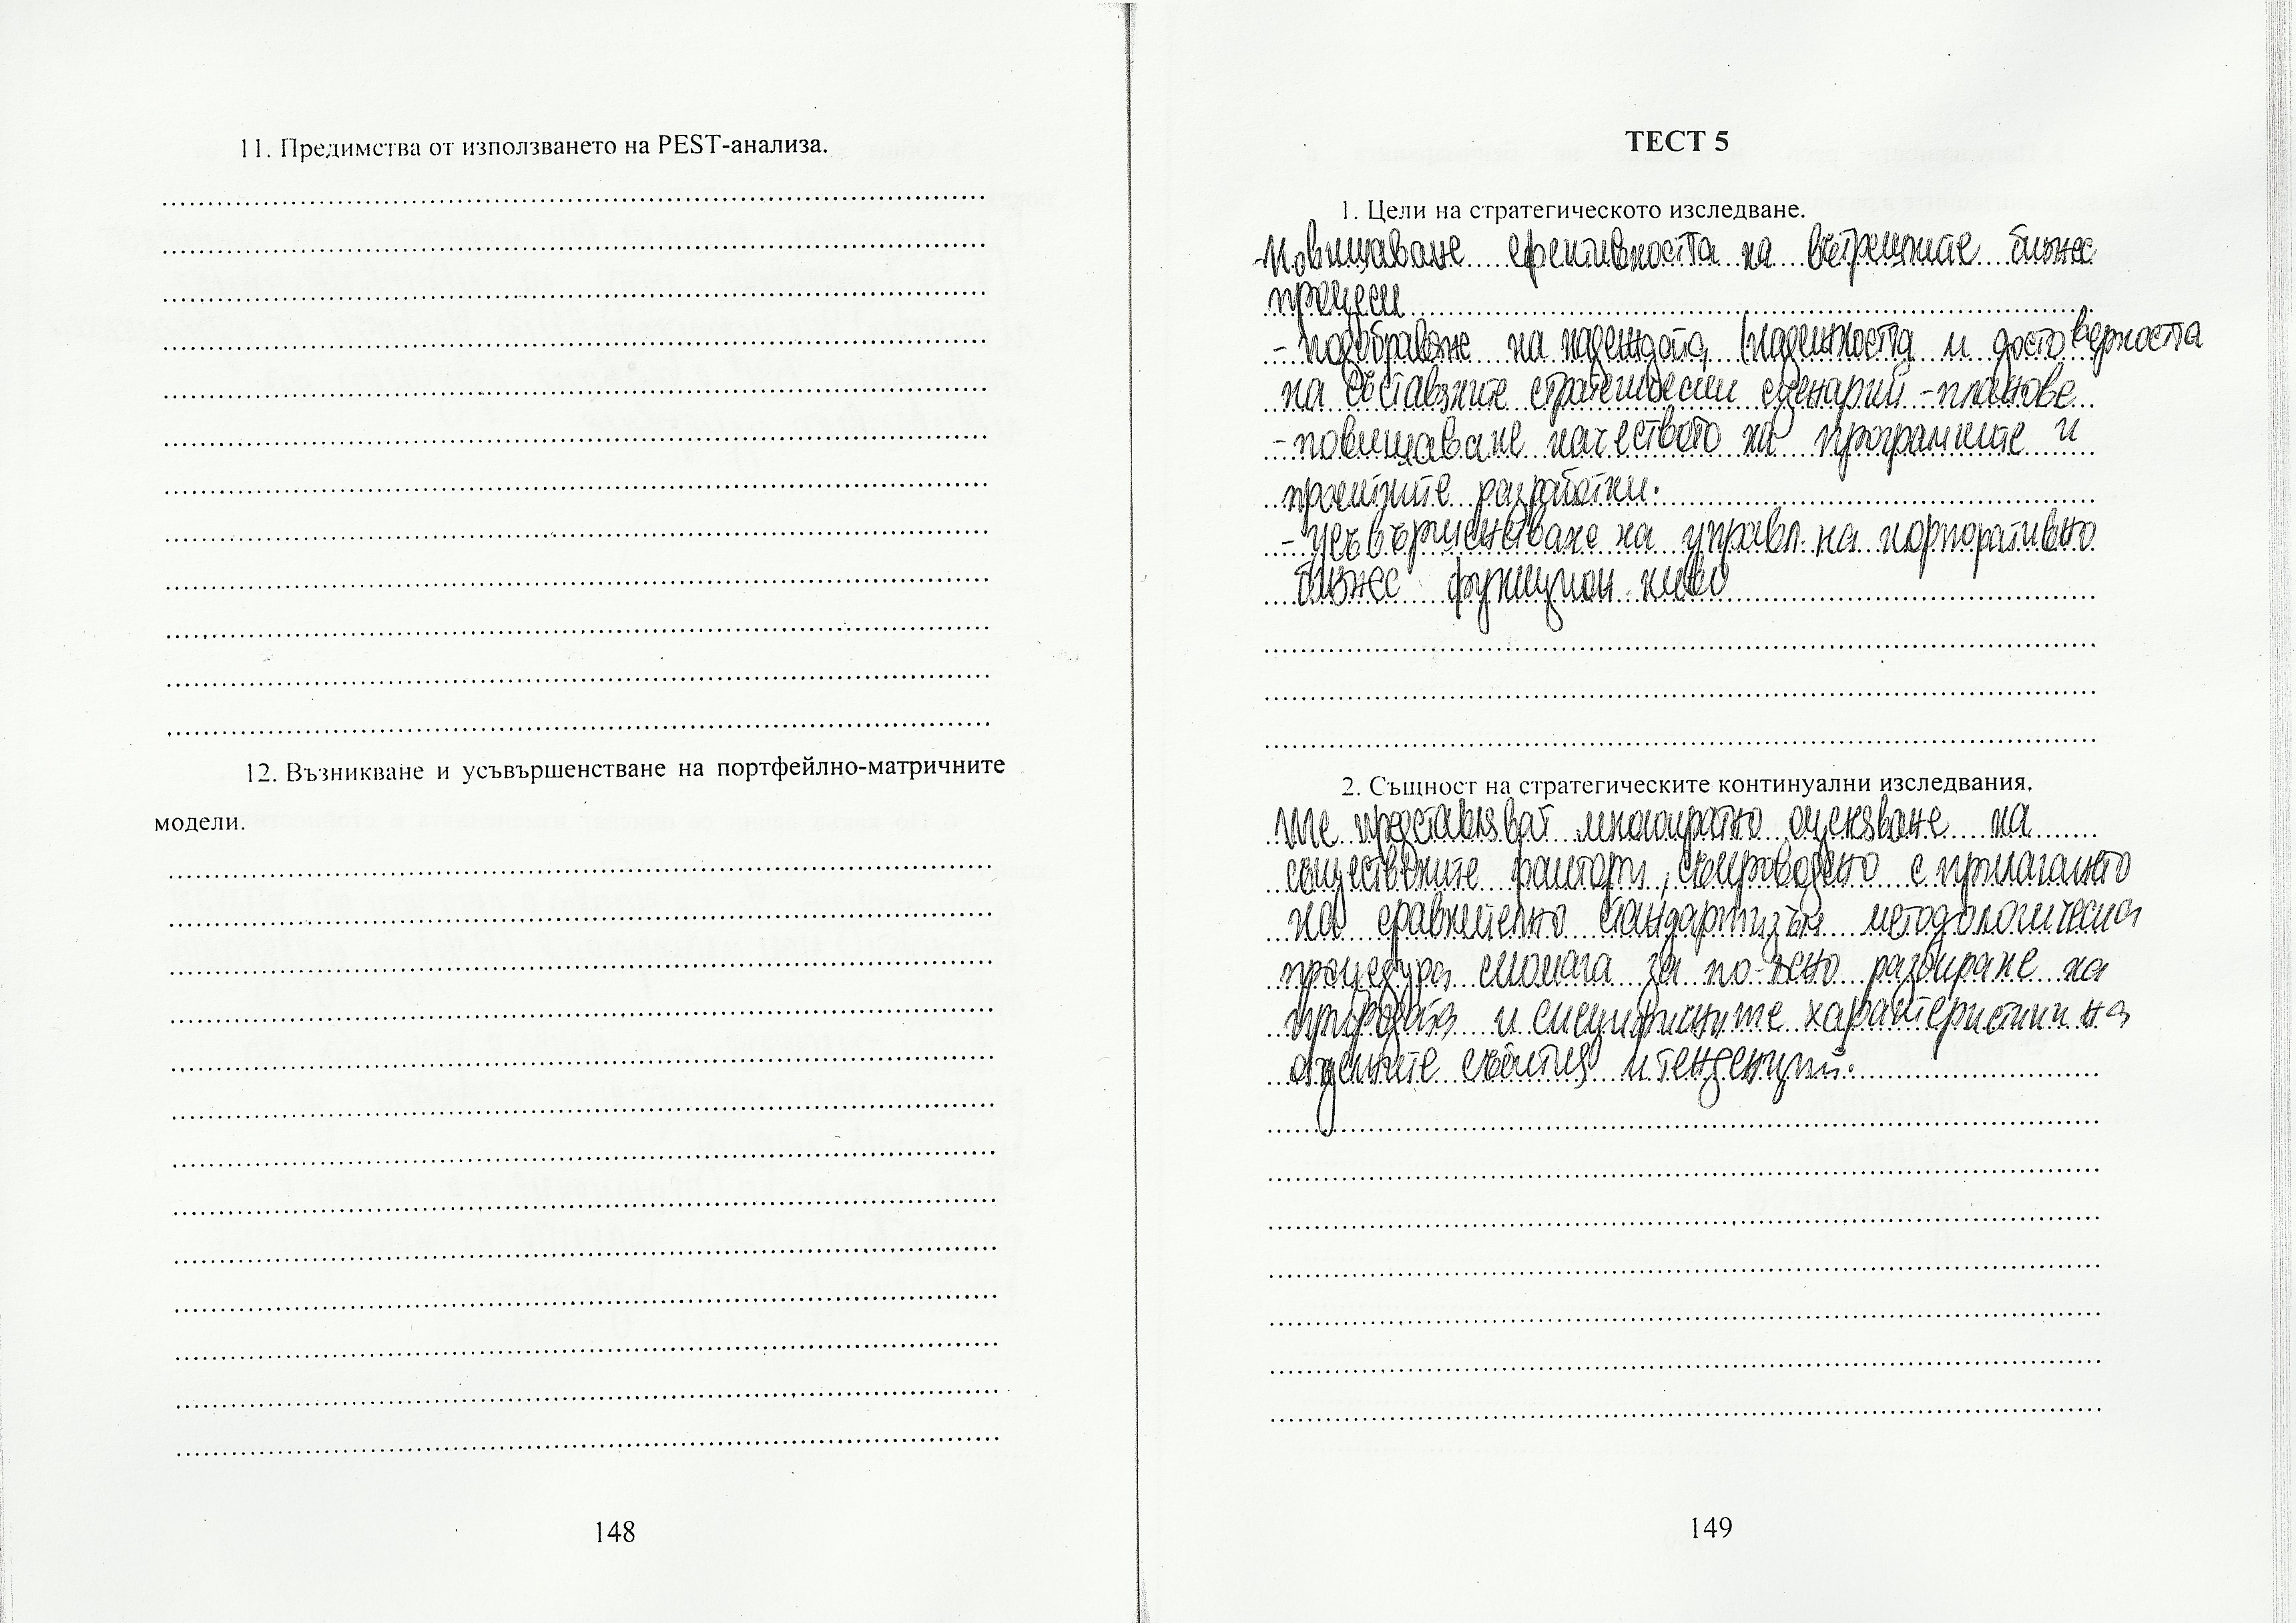 11. Предимства от използването на PEST-анализа.
12. Възникване и усъвършенстване на портфейлно-матричните
модели.
148
ТЕСТ 5
1. Цели на стратегическото изследване.
-Повишаване ефективността на вътрешните бизнес
процеси
- подобраване на надеждата (надеждността и достоверността
на съставяните стратегически сценарий - планове
- повишаване качеството на програмните и
проектните разработки.
- усъвършенстване на управл. на корпоративно
бизнес функцион. ниво
2. Същност на стратегическите континуални изследвания.
Те представляват многократно оценяване на
съществените фактори, съпроводено с прилагането
на сравнително стандартизън методологическа
процедура спомага за по-ясно разбиране на
природата и специфичните характеристики на
отделните събития и тенденции.
149